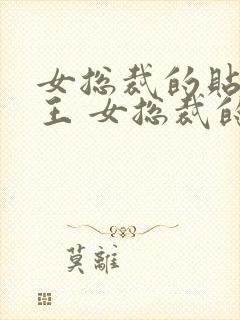 女总裁的貼
王 女总裁的
莫離